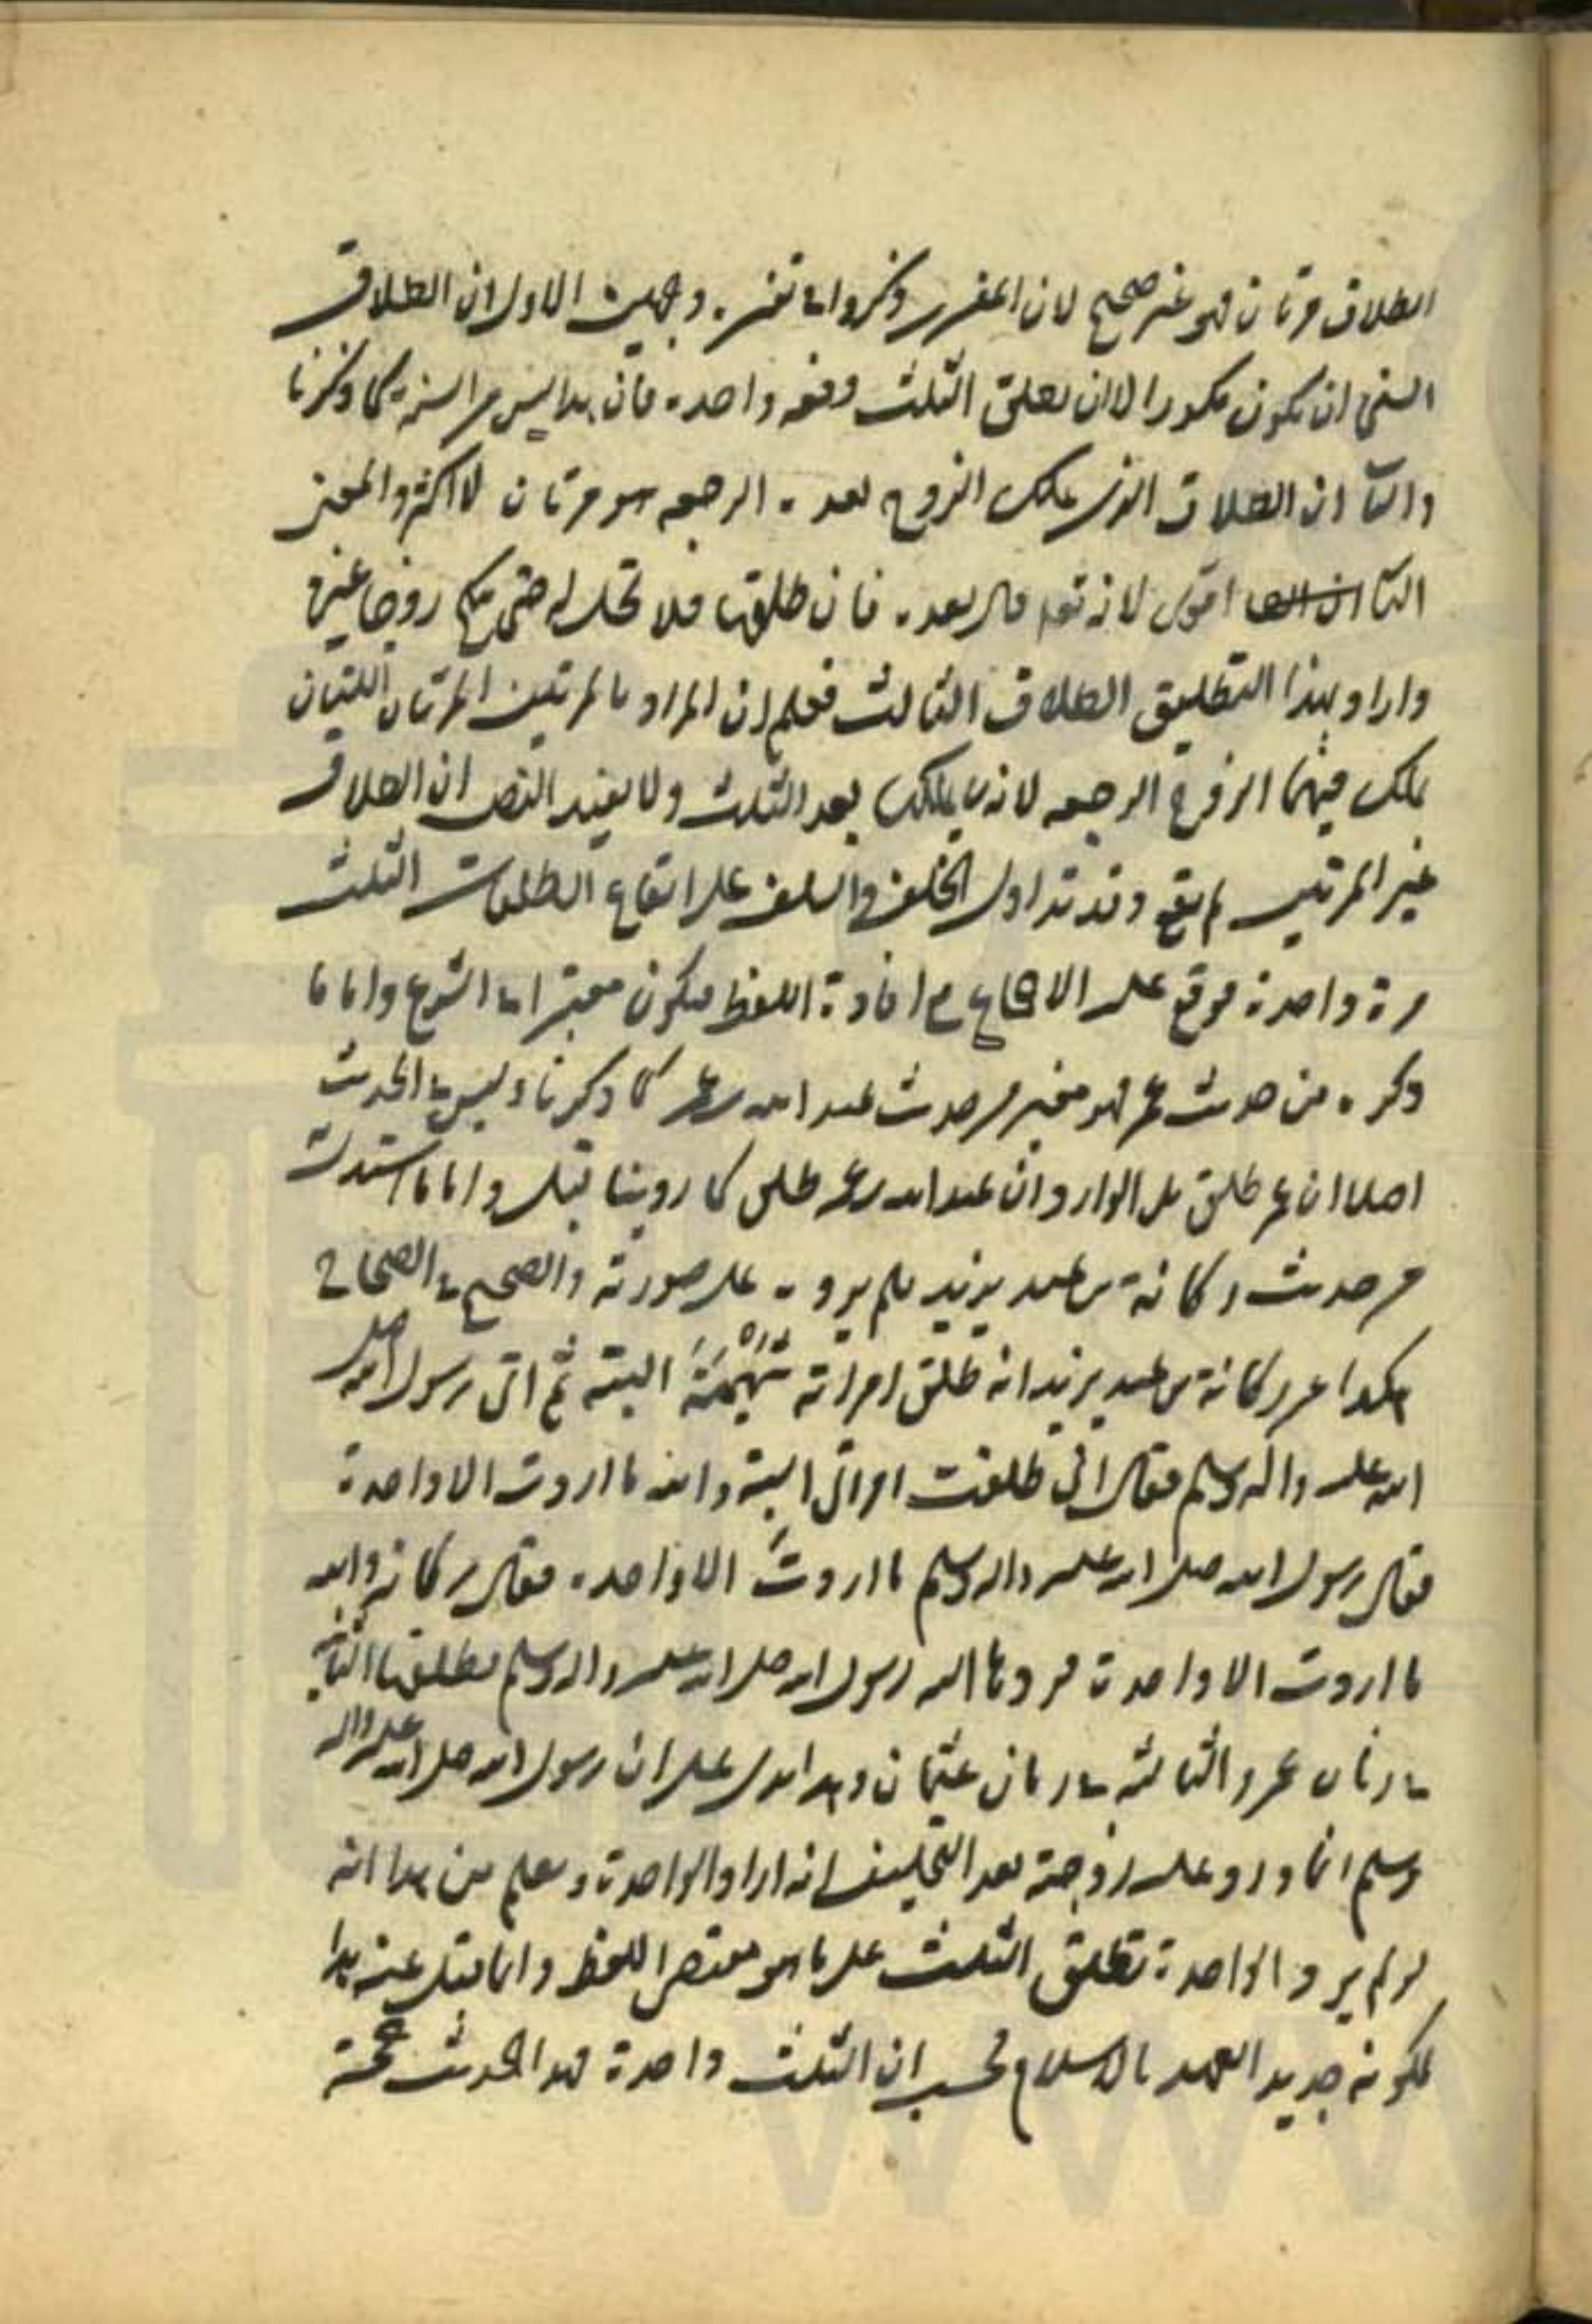 الطلاق مرتان فهو غير صحيح لان المفسرين ذكروا في تفسيره وجهين الاول ان الطلاق
السنى ان يكون مكررا لا ان يطلق الثلث دفعه واحده فان هذا ليس من السنة كما ذكرنا
والثانى ان الطلاق الذى يملك الزوج بعده الرجعه هو مرتان لا اكثر والمعنى
الثانى اقوى لانه تعم قال بعده فان طلقها فلا تحل له حتى ينكح زوجا غيره
واراد بهذا التطليق الطلاق الثالث فعلم ان المراد بالمرتين المرتان اللتان
يملك فيهما الزوج الرجعه لانه لا يملك بعد الثلث ولا يفيد النص ان الطلاق
غير المرتين لم يقع وقد تداول الخلف والسلف على ايقاع الطلقات الثلث
مرة واحدة فوقع على الاجماع مع افادة اللفظ فيكون معتبرا فى الشرع واما ما
ذكره من حديث عمر فهو مغير من حديث عبد الله بن عمر كما ذكرنا وليس فى الحديث
اصلا ان عمر طلق بل الوارد ان عبد الله بن عمر طلق كما روينا قبل واما ما استدل
من حديث ركانة بن عبد يزيد فلم يروه على صورته والصحيح فى الصحاح
هكذا عن ركانة بن عبد يزيد انه طلق امراته سُهَيْمَة البتة ثم اتى رسول الله صلى
الله عليه واله وسلم فقال انى طلقت امراتى البتة والله ما اردت الا واحدة
فقال رسول الله صلى الله عليه واله وسلم ما اردتَ الا واحده فقال ركانة والله
ما اردت الا واحدة فردها اليه رسول الله صلى الله عليه واله وسلم فطلقها الثانية
فى زمان عمر والثالثة فى زمان عثمان وهذا يدل على ان رسول الله صلى الله عليه واله
وسلم انما رد عليه زوجته بعد التحليف انه اراد الواحدة ويعلم من هذا انه
لو لم يرد الواحدة تطلق الثلث على ما هو مقتضى اللفظ وانما قبل عنه هذا
لكونه جديد العهد بالاسلام فحسب ان الثلث واحدة فهذا الحديث حجة